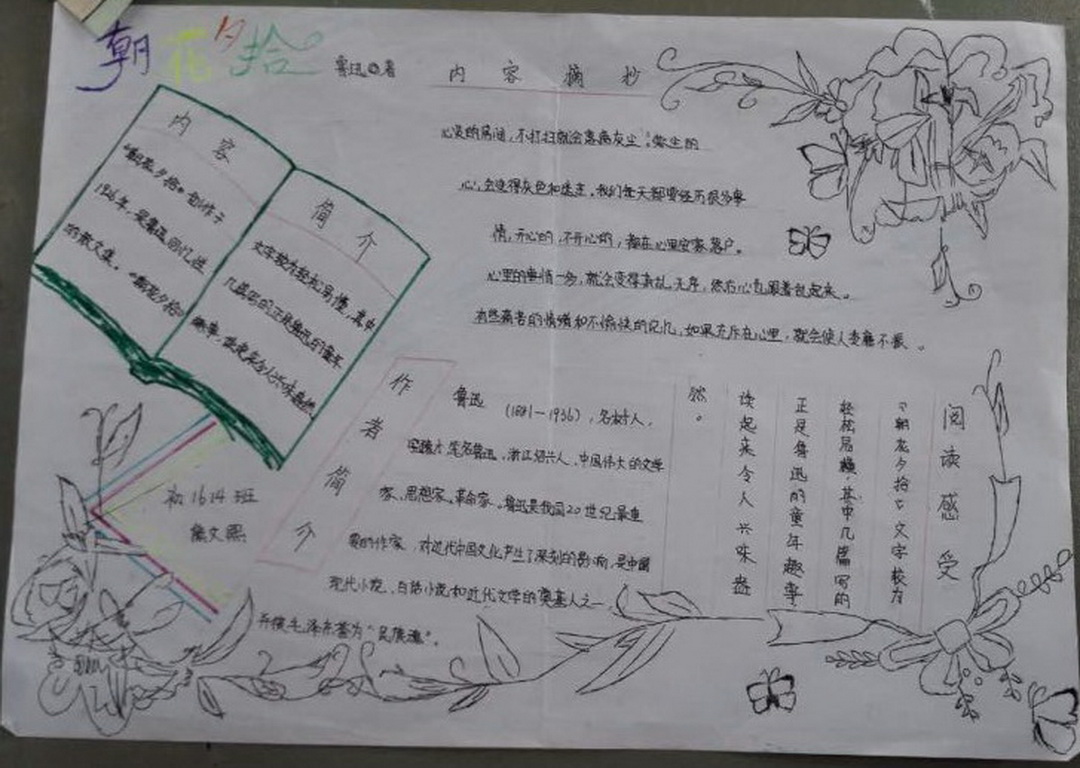 朝花夕拾
鲁迅 著
内容
《朝花夕拾》创作于
1926年，是鲁迅回忆性
的散文集。《朝花夕拾》
简介
文字较为轻松易懂，其中
几篇写的正是鲁迅的童年
趣事，读起来令人兴味盎然
内容摘抄
心灵的房间，不打扫就会落满灰尘。蒙尘的
心，会变得灰色和迷茫。我们每天都要经历很多事
情，开心的，不开心的，都在心里安家落户。
心里的事情一多，就会变得杂乱无序，然后心也跟着乱起来。
有些痛苦的情绪和不愉快的记忆，如果充斥在心里，就会使人萎靡不振。
作者简介
鲁迅（1881—1936），名树人，
字豫才 笔名鲁迅，浙江绍兴人，中国伟大的文学
家、思想家、革命家。鲁迅是我国20世纪最重
要的作家，对近代中国文化产生了深刻的影响，是中国
现代小说、白话小说和近代文学的奠基人之一
并被毛泽东誉为“民族魂”。
阅读感受
《朝花夕拾》文字较为
轻松易懂，其中几篇写的
正是鲁迅的童年趣事，
读起来令人兴味盎
然。
初1614班